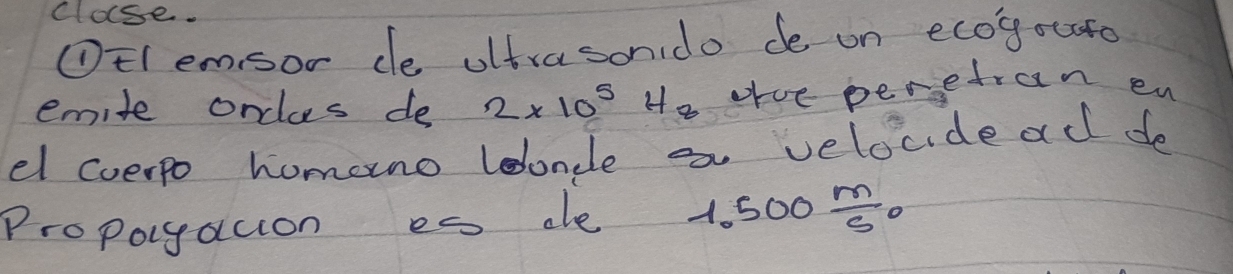 clase.
① El emisor de ultrasonido de un ecógrafo
emite ondas de 2x10⁵ Hz que penetran en
el cuerpo humano donde su velocidead de
Propagacion es de 1.500 m/s.